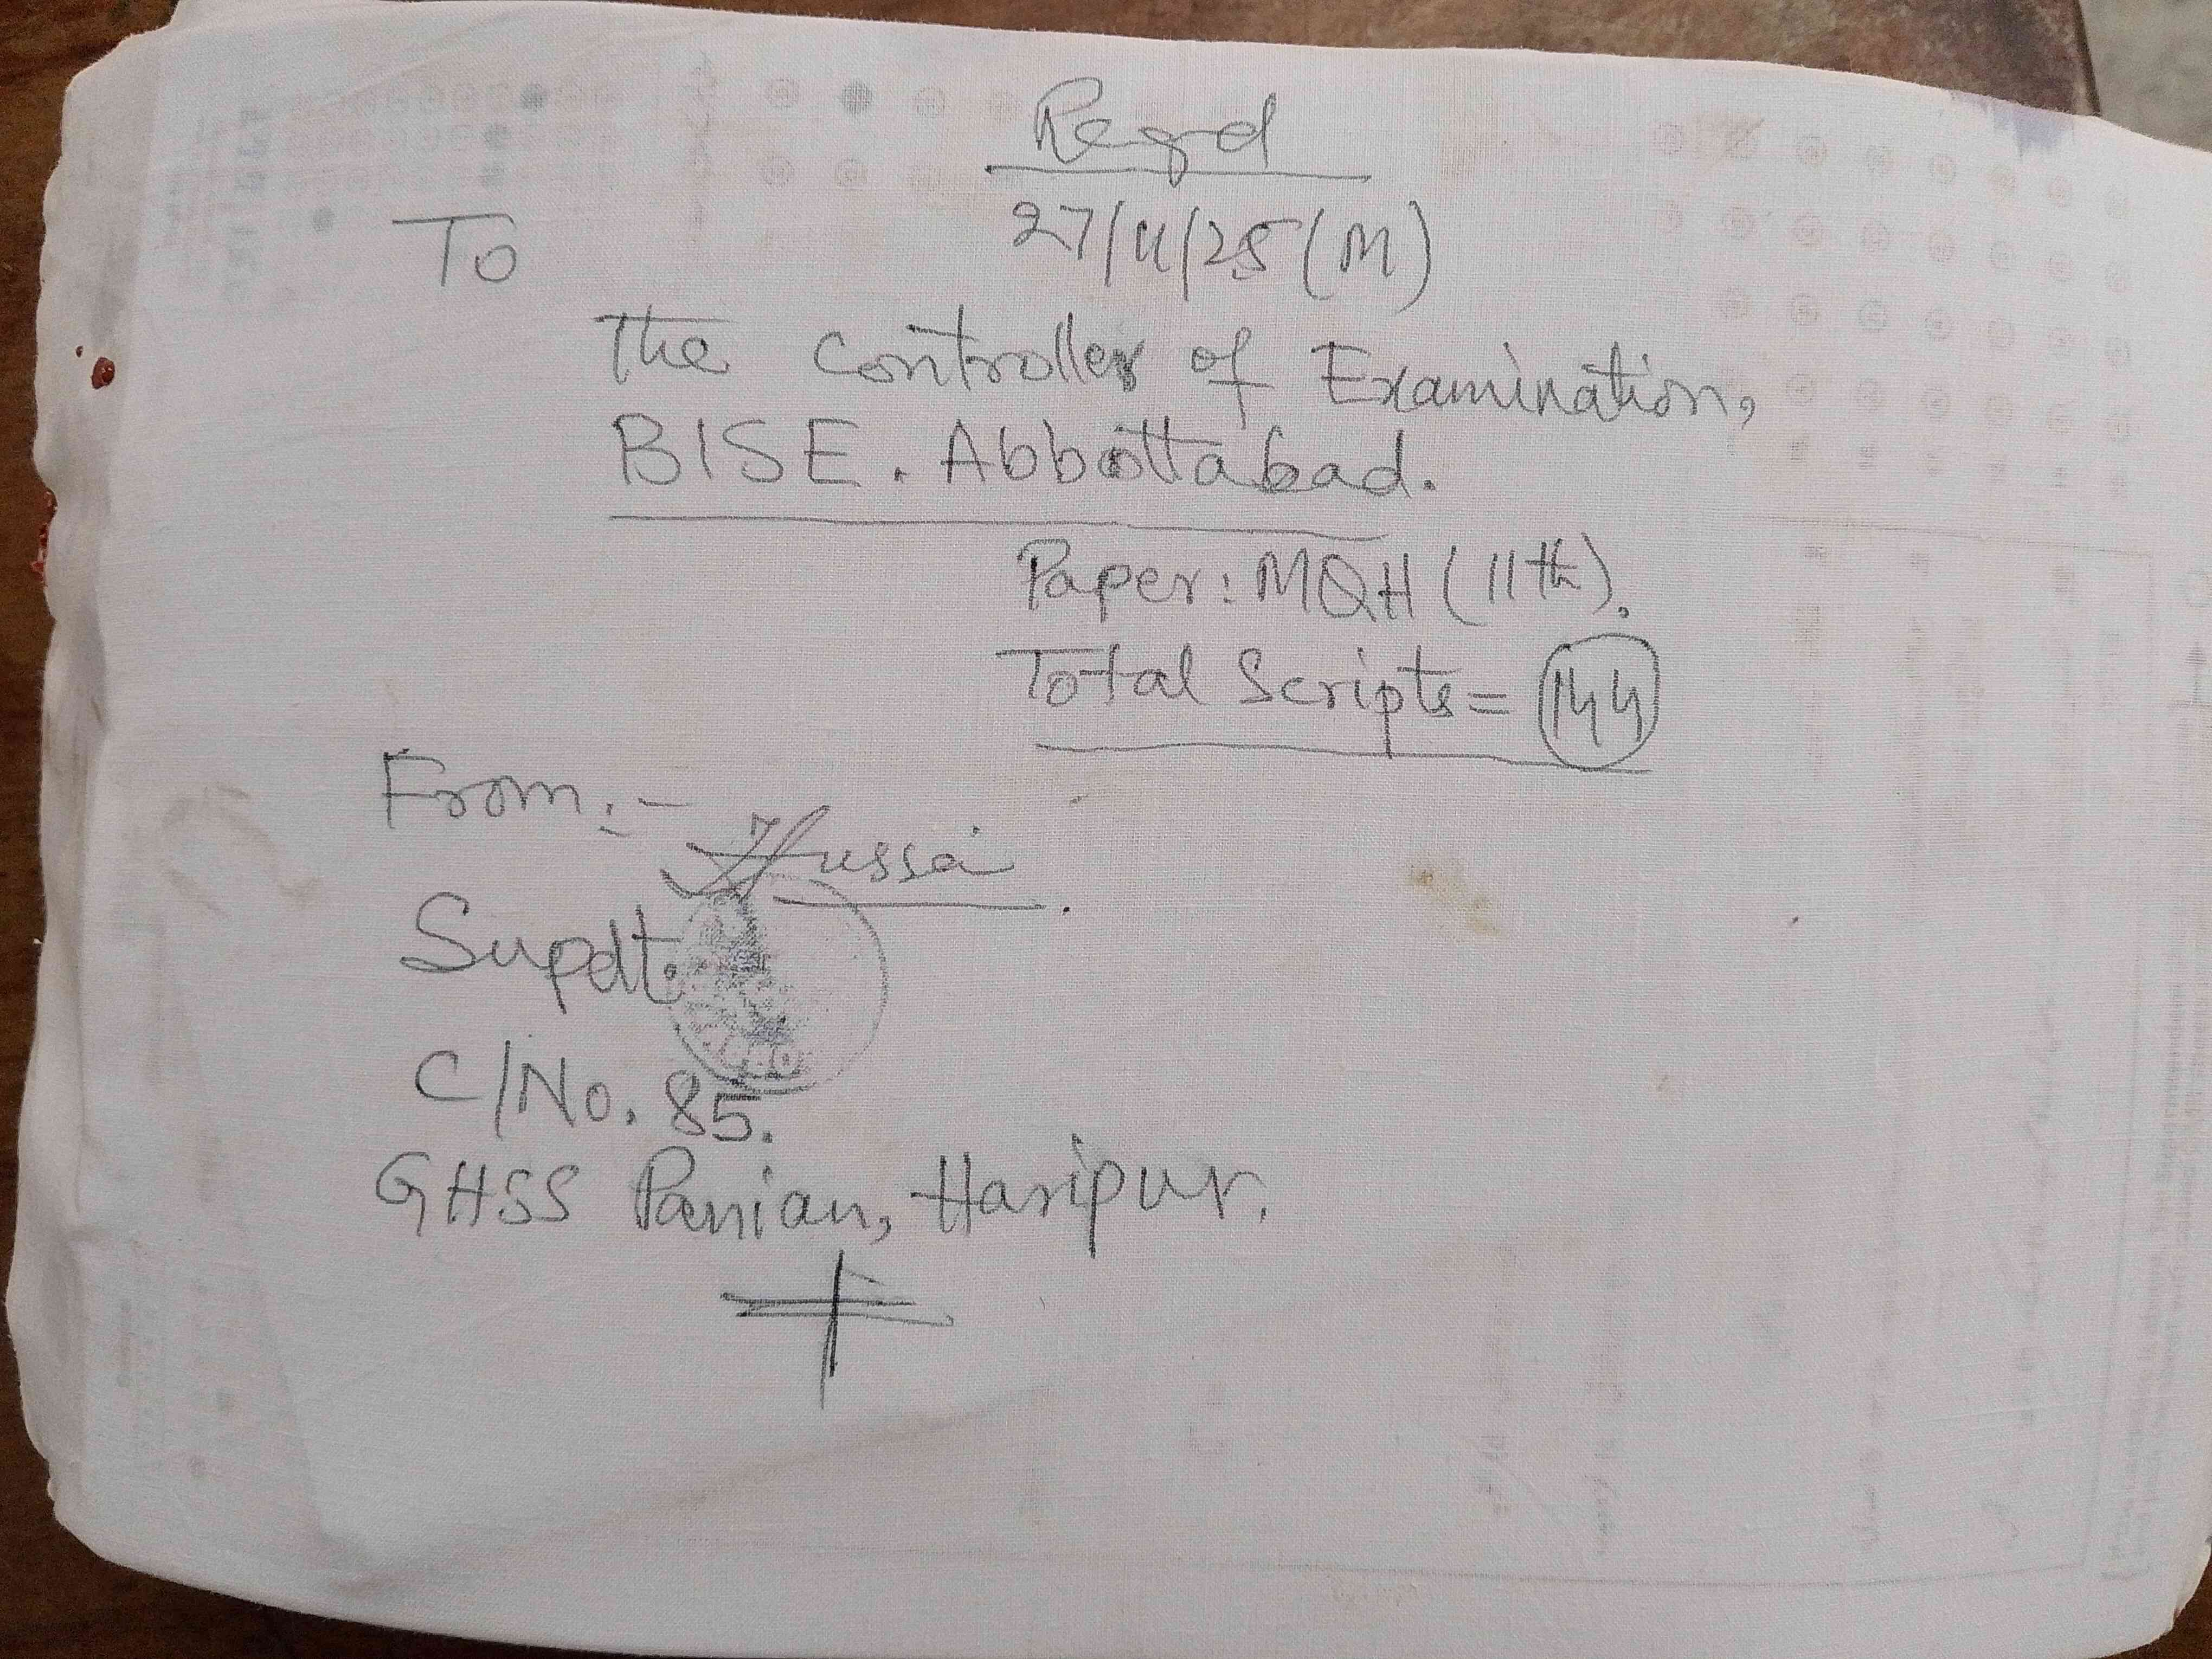 Regd
To
27/4/25 (M)
The Controller of Examination,
BISE. Abbottabad.
Paper: MQH (11th).
Total Scripts = 144
From:-
Hussa
Supdt.
C/No. 85.
GHSS Panian, Haripur.